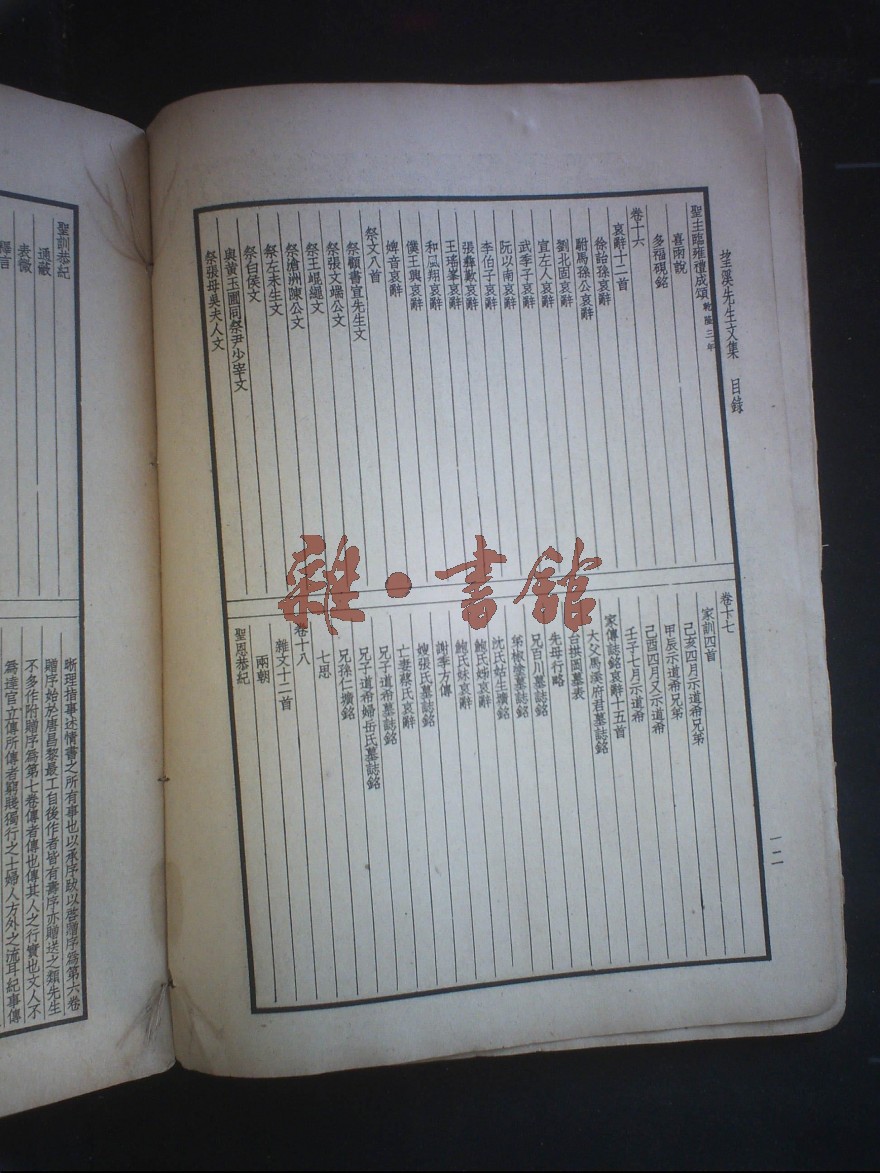 望溪先生文集 目錄
聖主臨雍禮成頌乾隆三年
喜雨說
多福硯銘
卷十六
哀辭十二首
徐詒孫哀辭
駙馬孫公哀辭
劉北固哀辭
宣左人哀辭
武季子哀辭
阮以南哀辭
李伯子哀辭
張彝歎哀辭
王瑤峯哀辭
和風翔哀辭
僕王興哀辭
婢音哀辭
祭文八首
祭顧書宣先生文
祭張文端公文
祭王崐繩文
祭滄洲陳公文
祭左未生文
祭白侯文
與黃玉圃同祭尹少宰文
祭張母吳夫人文
卷十七
家訓四首
己亥四月示道希兄弟
甲辰示道希兄弟
己酉四月又示道希
壬子七月示道希
家傳誌銘哀辭十五首
大父馬溪府君墓誌銘
台拱岡墓表
先母行略
兄百川墓誌銘
弟椒塗墓誌銘
沈氏姑生壙銘
鮑氏姊哀辭
鮑氏妹哀辭
謝季方傳
嫂張氏墓誌銘
亡妻蔡氏哀辭
兄子道希墓誌銘
兄子道希婦岳氏墓誌銘
兄孫仁壙銘
七思
卷十八
雜文十二首
兩朝
聖恩恭紀
一二
雜·書館
聖訓恭紀
通蔽
表微
釋言
晰理指事述情書之所有事也以承序跋以啓贈序爲第六卷
贈序始於唐昌黎最工自後作者皆有壽序亦贈送之類先生
不多作附贈序爲第七卷傳者傳也傳其人之行實也文人不
爲達官立傳所傳者窮賤獨行之士婦人方外之流耳紀事傳